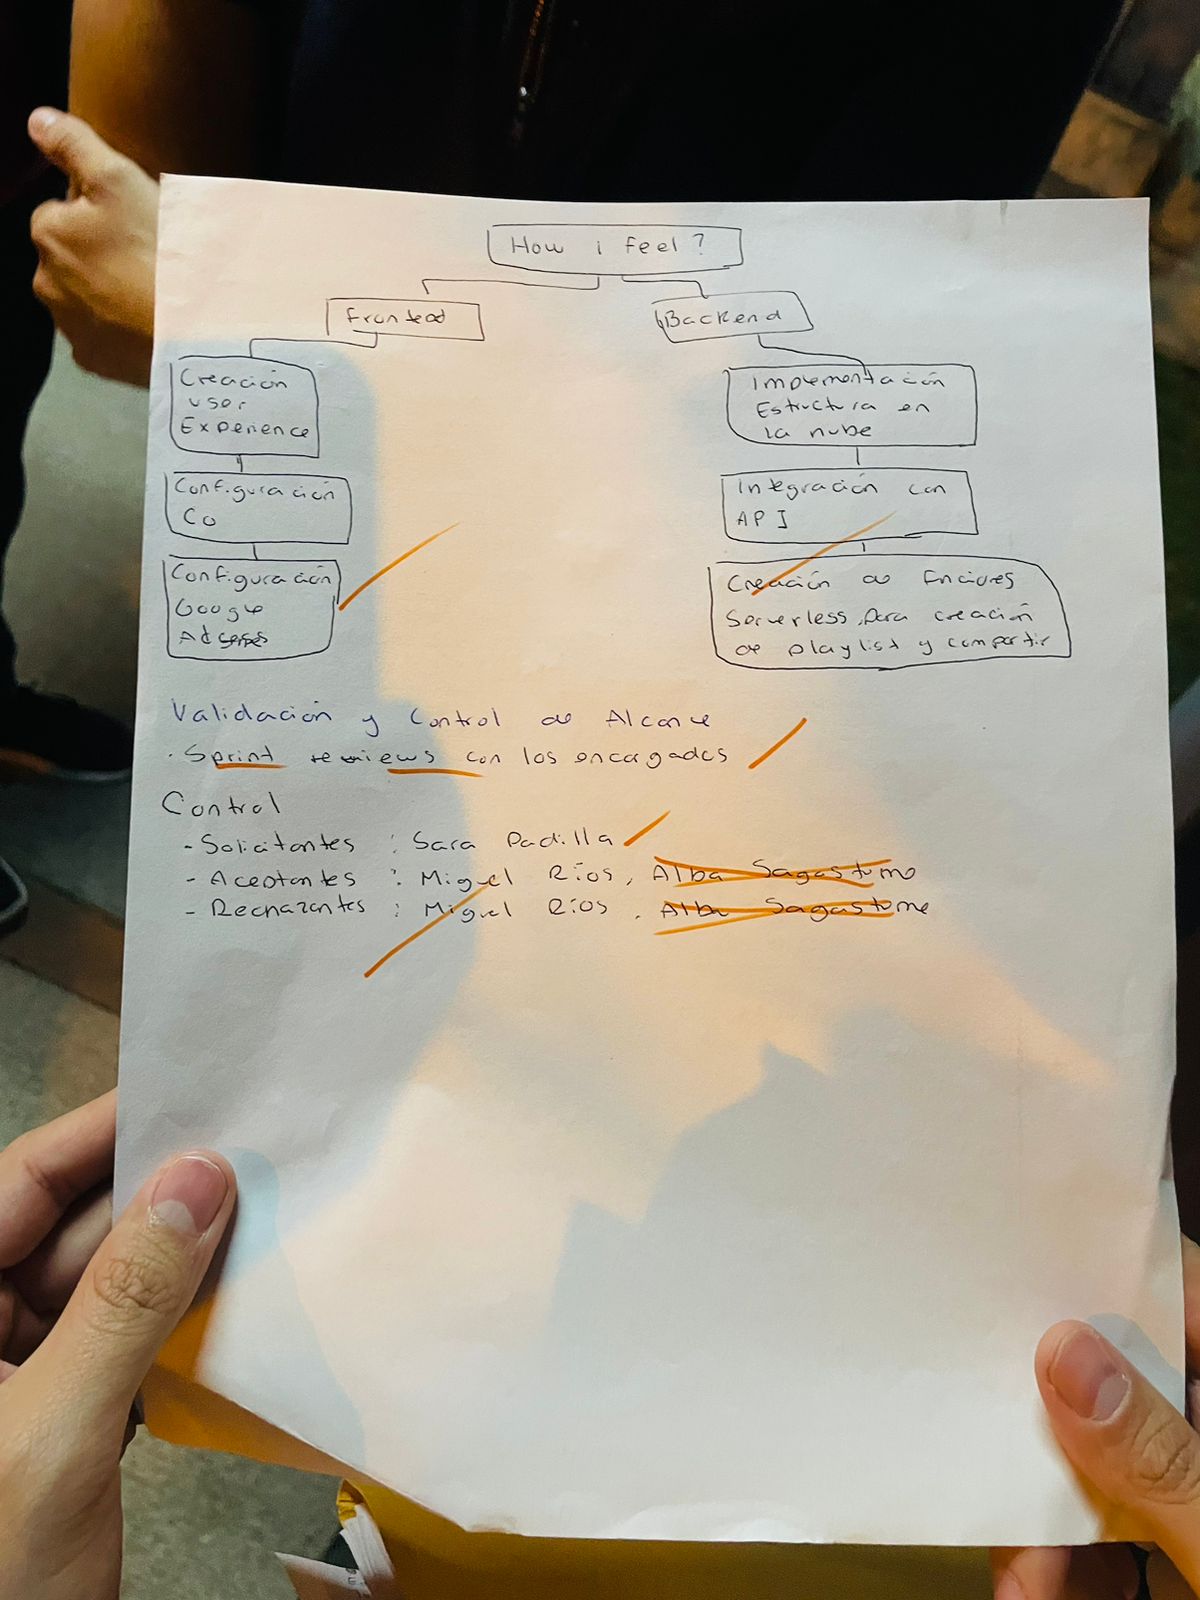 How i feel?
Frontend
Backend
Creación
user
Experience
Configuración
Co
Configuración
Google
Adsenses
Implementación
Estructura en
la nube
Integración con
API
Creación de Fnciones
Serverless para creación
de playlist y compartir
Validación y Control de Alcance
· Sprint reviews con los encargados
Control
- Solicitantes : Sara Padilla
- Aceptantes : Miguel Ríos, Alba Sagastume
- Rechazantes : Miguel Ríos, Alba Sagastume